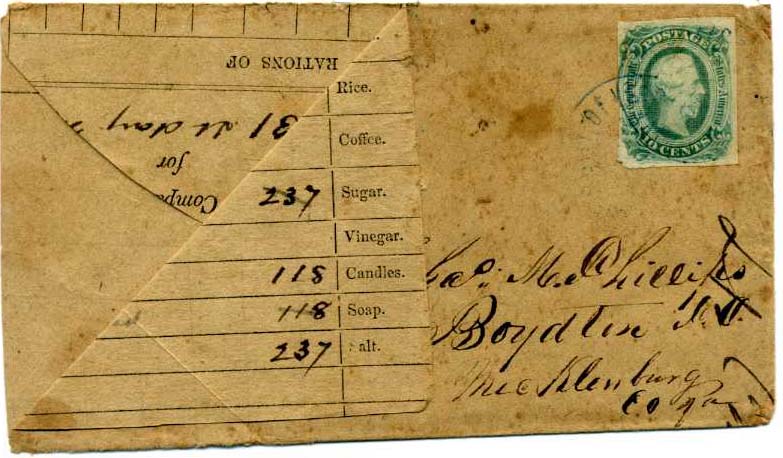 RATIONS OF
31 st day
for
Compa
Rice.
Coffee.
237 Sugar.
Vinegar.
118 Candles.
118 Soap.
237 alt.
POSTAGE
10 CENTS
M. A. Phillips
Boydton
Mecklenburg
Co